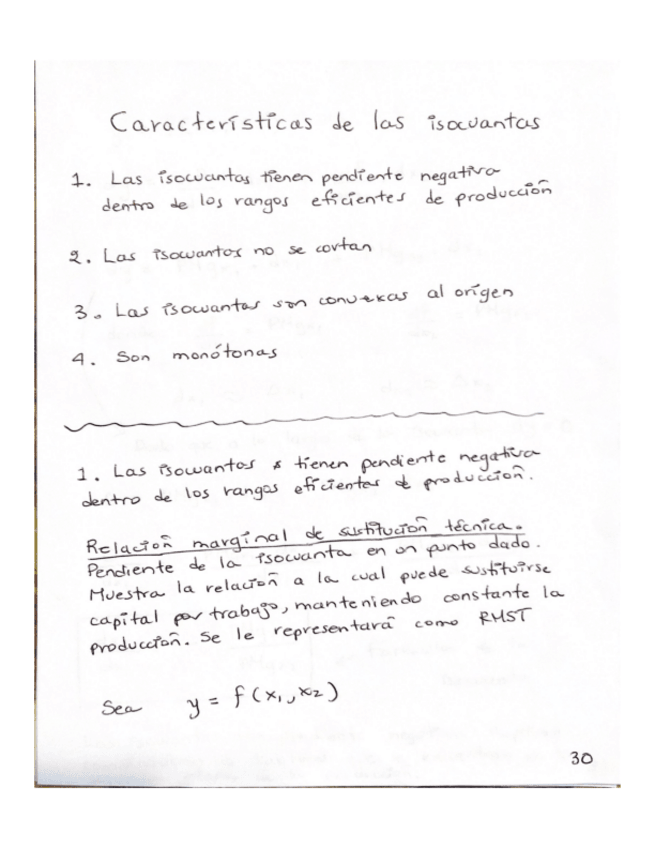 Características de las isocuantas
1. Las isocuantas tienen pendiente negativa
dentro de los rangos eficientes de producción
2. Las isocuantas no se cortan
3. Las isocuantas son convexas al origen
4. Son monótonas
1. Las isocuantas tienen pendiente negativa
dentro de los rangos eficientes de producción.
Relación marginal de sustitución técnica.
Pendiente de la isocuanta en un punto dado.
Muestra la relación a la cual puede sustituirse
capital por trabajo, manteniendo constante la
producción. Se le representará como RMST
Sea y = f(x₁, x₂)
30